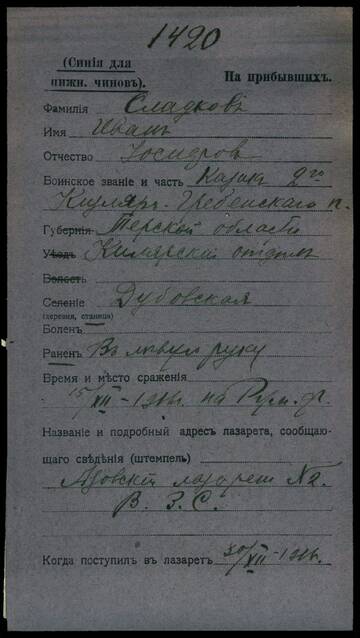 1420
(Синія для
нижн. чиновъ).
На прибывшихъ.
Фамилія Сладковъ
Имя Иванъ
Отчество
Воинское званіе и часть Казакъ 2го
Кизляро-Гребенскаго п.
Губернія Терской области
Уѣздъ Кизлярскій отдѣлъ
Волость
Селеніе Дубовская
(деревня, станица)
Боленъ
Раненъ Въ лѣвую руку
Время и мѣсто сраженія
15/XII-1916г. на Рум. ф.
Названіе и подробный адресъ лазарета, сообщаю-
щаго свѣдѣнія (штемпель)
Азовскій лазаретъ №2.
В. З. С.
Когда поступилъ въ лазаретъ 30/XII-1916г.